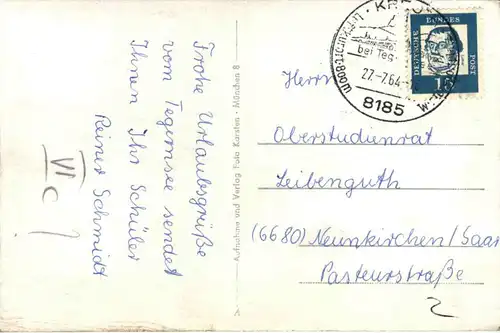 Frohe Urlaubsgrüße
vom Tegernsee sendet
Ihnen Ihr Schüler
Reiner Schmidt
VI c
Aufnahme und Verlag Foto Karsten · München 8
KR
bei Teg
27.-7.64
8185
DEUTSCHE
BUNDES
POST
15
Herrn
Oberstudienrat
Leibenguth
(6680) Neunkirchen/Saar
Pasteurstraße
2